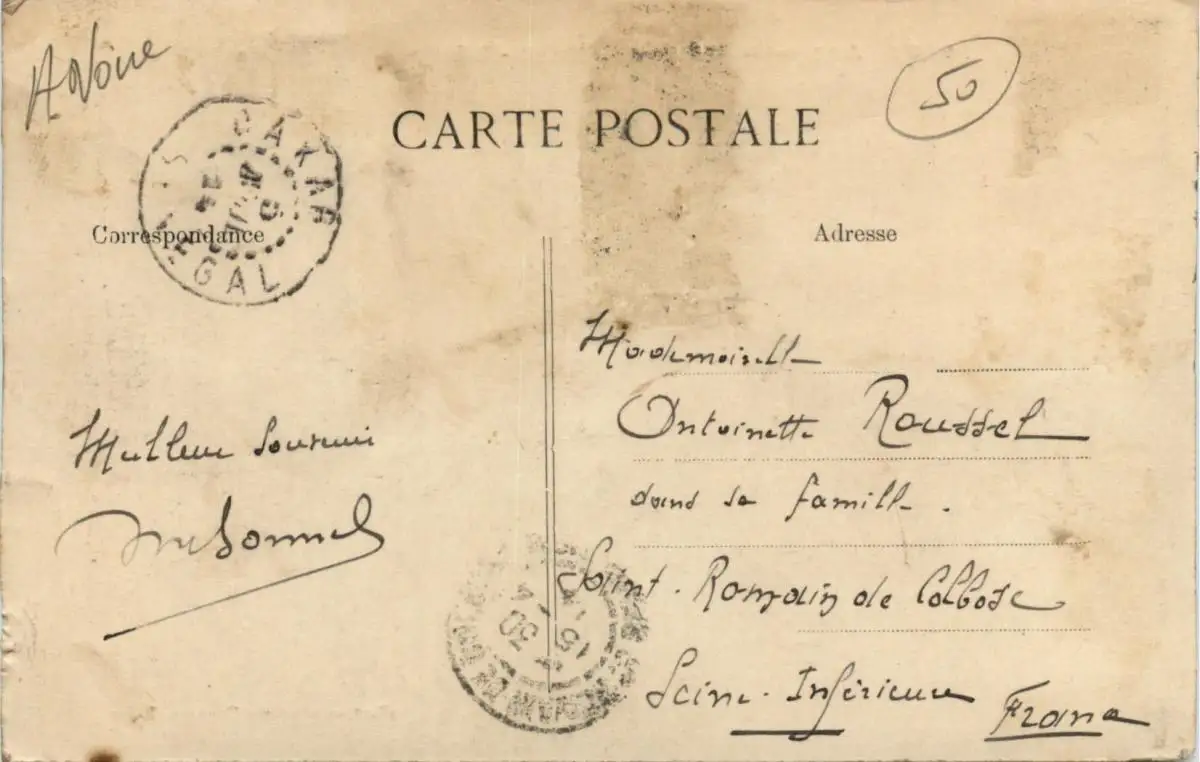 A Voir
50
CARTE POSTALE
DAKAR
GAL
Correspondance
Adresse
Mademoiselle
Antoinette Roussel
dans sa famille.
Saint-Romain de Colbosc
Seine-Inférieure
France
Meilleur Souvenir
15
30